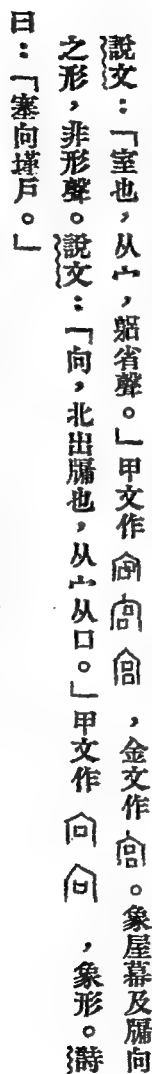 說文：「室也，从宀，躳省聲。」甲文作，金文作。象屋幕及牖向
之形，非形聲。說文：「向，北出牖也，从宀从口。」甲文作，象形。詩
曰：「塞向墐戶。」